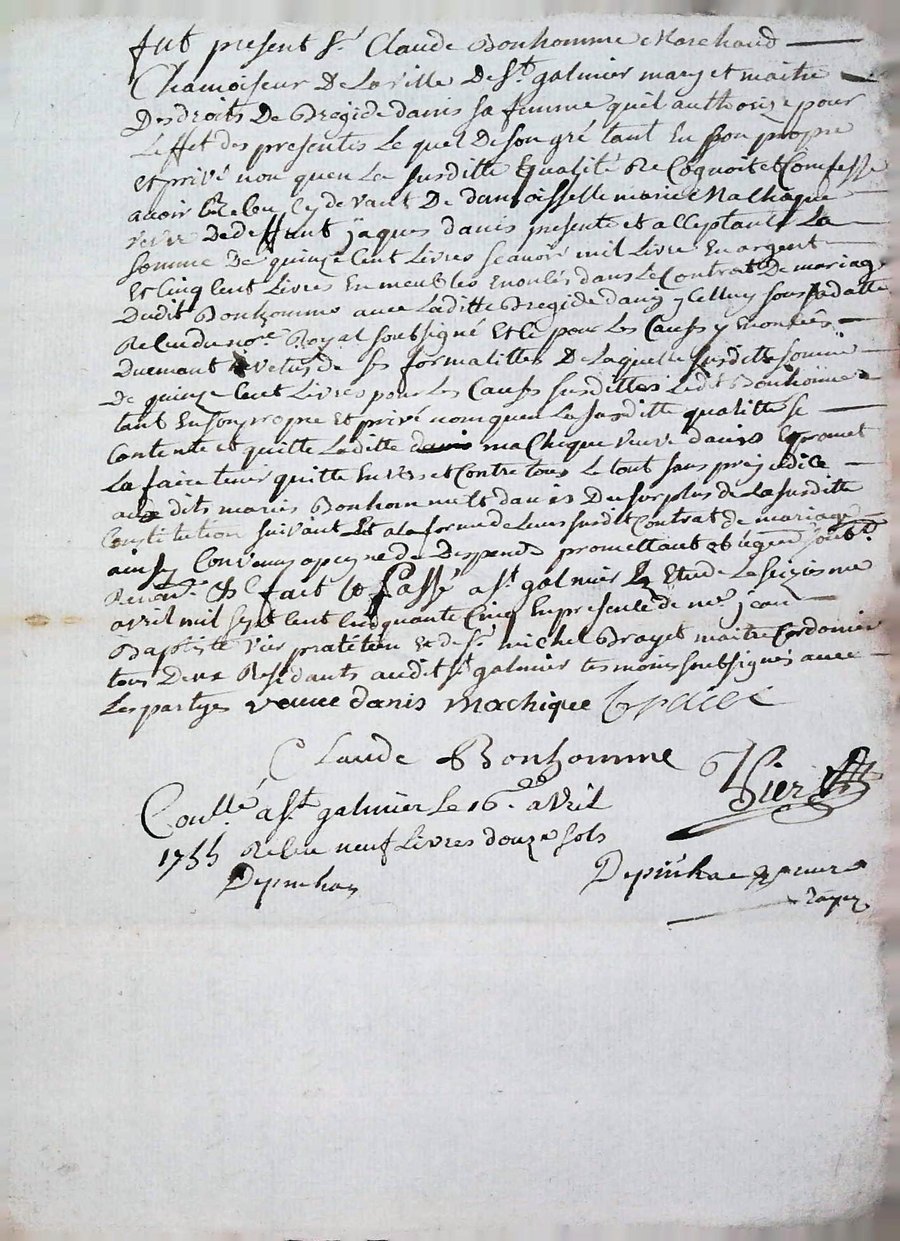 fut present Sr. Claude Bonhomme Marchand
Chamoiseur De la ville De St galmier mary et maitre
Des droits De Bregide danis sa femme quil authorize pour
L'effet des presentes Le quel De son gré tant En son propre
et privé non quen La susditte Equalité Recognoit et Comfesse
avoir Receu Cy devant De damoisselle marie Machique
veuve De deffunt jaques danis presente et acceptante La
somme De quinze Cent Livres scavoir mil Livre En argent
Et Cinq Cent Livres En meubles Enonces dans Le Contrat De mariage
Dudit Bonhomme avec Laditte Bregide danis y Celluy sous sa datte
Receu du nore. Royal soubsigné Et Ce pour Les Causes y Enoncées
Duemant Revetus de ses formalittes De Laquelle susditte somme
De quinze Cent Livres pour Les Causes susdittes Ledit Bonhomme
tant En son propre Et privé nom quen La susditte qualitté se
Contente et quitte Laditte machique veuve danis Et promet
La faire tenir quitte Envers et Contre tous Le tout sans prejudice
aux dits maries Bonhomme et danis Du surplus de La susditte
Constitution suivant Et a la forme de Leur susdit Contrat de mariage
ainsy Convenu a peyne de Despends promettant obligeant soubt.
Renonc. &c fait et Passé a St galmier Etude Le seizieme
avril mil sept Cent Cinquante Cinq En presence de me. jean
Baptiste Vier praticien Et de Sr. michel Brayet maitre Cordonier
tous Deux Residants audit St galmier temoins soubsignés avec
Les partyes veuve danis Machique Braiet
Claude Bonhomme
Vier
Conllé a St galmier le 16e avril
1755 Receu neuf Livres douze sols
Depinhac
Depinhac